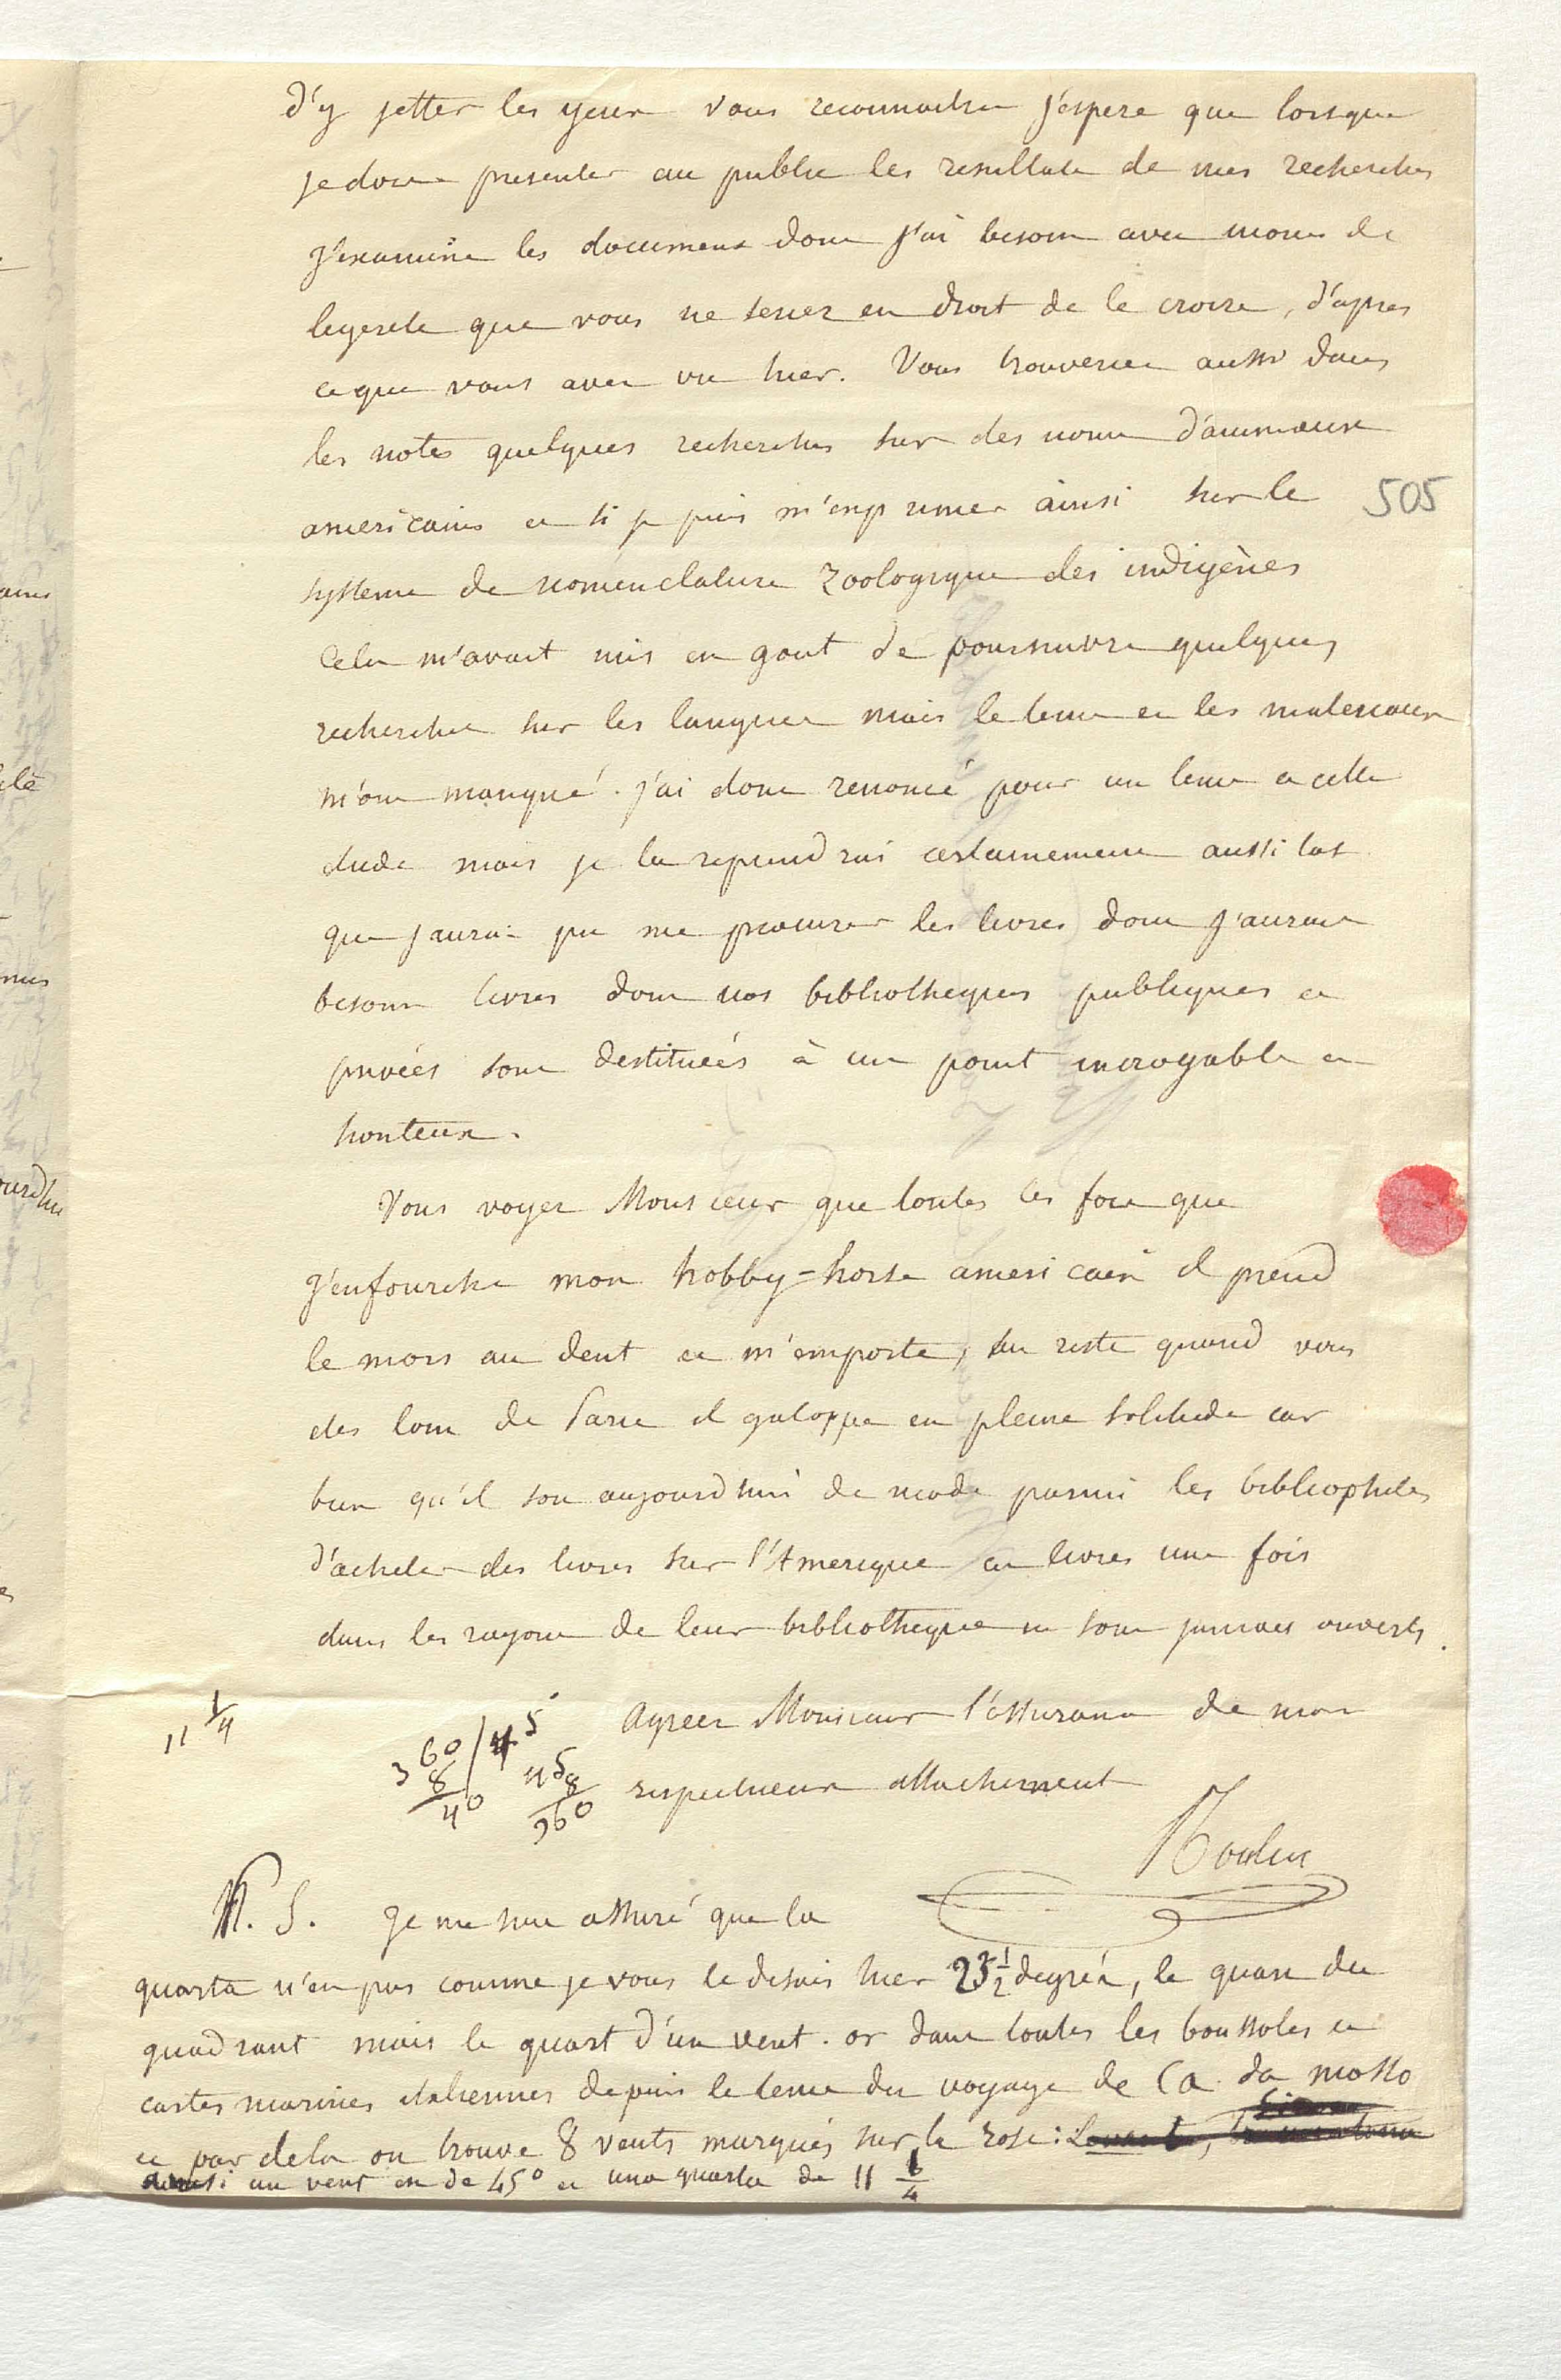 d'y jetter les yeux vous reconnaitrez j'espere que lorsque
je dois presenter au public les resultats de mes recherches
j'examine les documens dont j'ai besoin avec moins de
legereté que vous ne seriez en droit de le croire, d'apres
ce que vous avez vu hier. Vous trouverez aussi dans
les notes quelques recherches sur des noms d'animaux
americains et si je puis m'exprimer ainsi sur le
505
systeme de nomenclature zoologique des indigènes
Cela m'avait mis en gout de poursuivre quelques
recherches sur les langues mais le tems et les materiaux
m'ont manqué. j'ai donc renoncé pour un tems a cette
etude mais je la reprendrai certainement aussi tot
que j'aurai pu me procurer les livres dont j'aurais
besoin livres dont nos bibliotheques publiques et
privées sont destituées à un point incroyable et
honteux.
Vous voyez Monsieur que toutes les fois que
j'enfourche mon hobby-horse americain il prend
le mors au dent et m'emporte, au reste quand vous
etes loin de Paris il galoppe en pleine solitude car
bien qu'il soit aujourdhui de mode parmi les bibliophiles
d'acheter des livres sur l'Amerique ces livres une fois
dans les rayons de leur bibliotheque ne sont jamais ouverts.
11 1/4
360 / 45
8
40
45
8
360
Agreez Monsieur l'assurance de mon
respectueux attachement
Roulin
P. S. Je me suis assuré que la
quarta n'est pas comme je vous le disais hier 22 1/2 degrés, le quart du
quadrant mais le quart d'un vent. or dans toutes les boussoles et
cartes marines italiennes depuis le tems du voyage de Ca da mosto
et par dela on trouve 8 vents marqués sur la rose: Levante,
ainsi un vent est de 45° et una quarta de 11 1/4